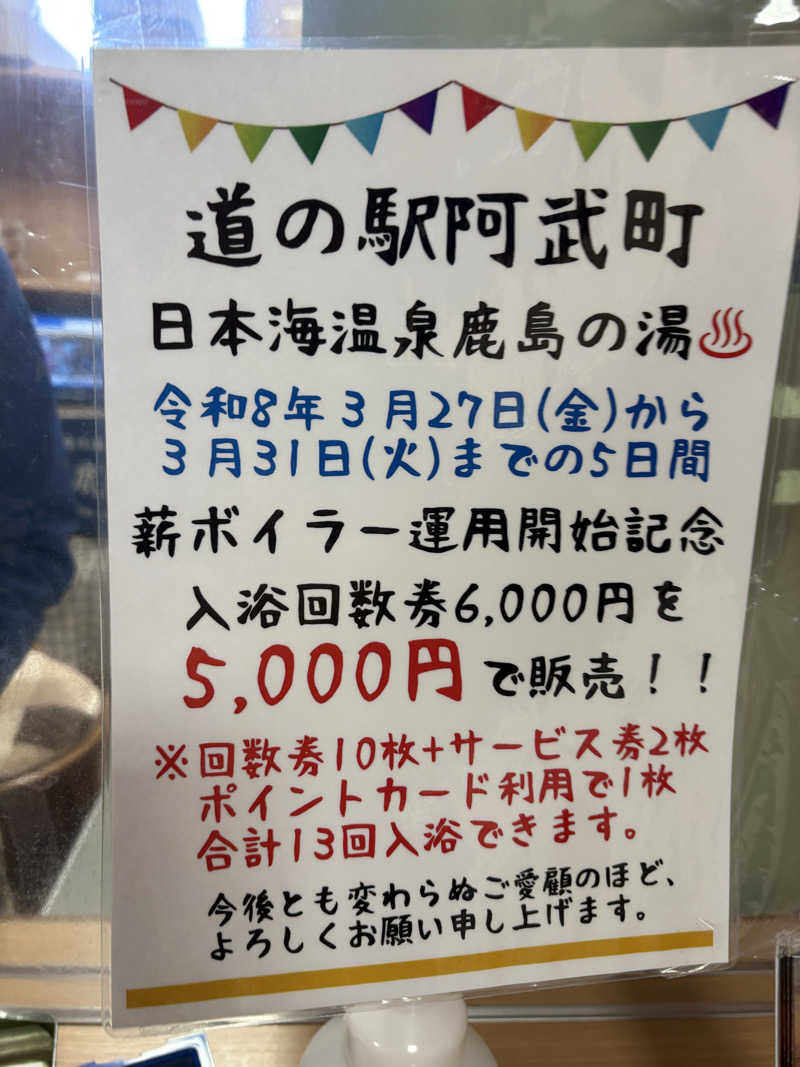 道の駅阿武町
日本海温泉鹿島の湯♨
令和8年3月27日(金)から
3月31日(火)までの5日間
薪ボイラー運用開始記念
入浴回数券6,000円を
5,000円で販売！！
※回数券10枚+サービス券2枚
ポイントカード利用で1枚
合計13回入浴できます。
今後とも変わらぬご愛顧のほど、
よろしくお願い申し上げます。